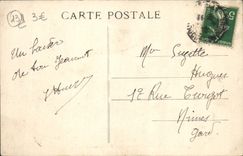 13 3€
CARTE POSTALE
Un baiser
de ton Jeannot
Mlle Suzette
Hugues
12 Rue Turgot
Nimes
Gard
5